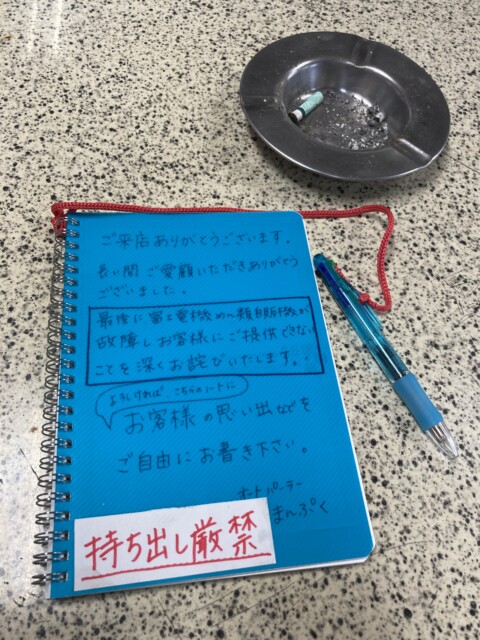 ご来店ありがとうございます。
長い間ご愛顧いただきありがとう
ございました。
最後に富士電機めん類自販機が
故障しお客様にご提供できない
ことを深くお詫びいたします。
よろしければ、こちらのノートに
お客様の思い出などを
ご自由にお書き下さい。
オートパーラー
まんぷく
持ち出し厳禁